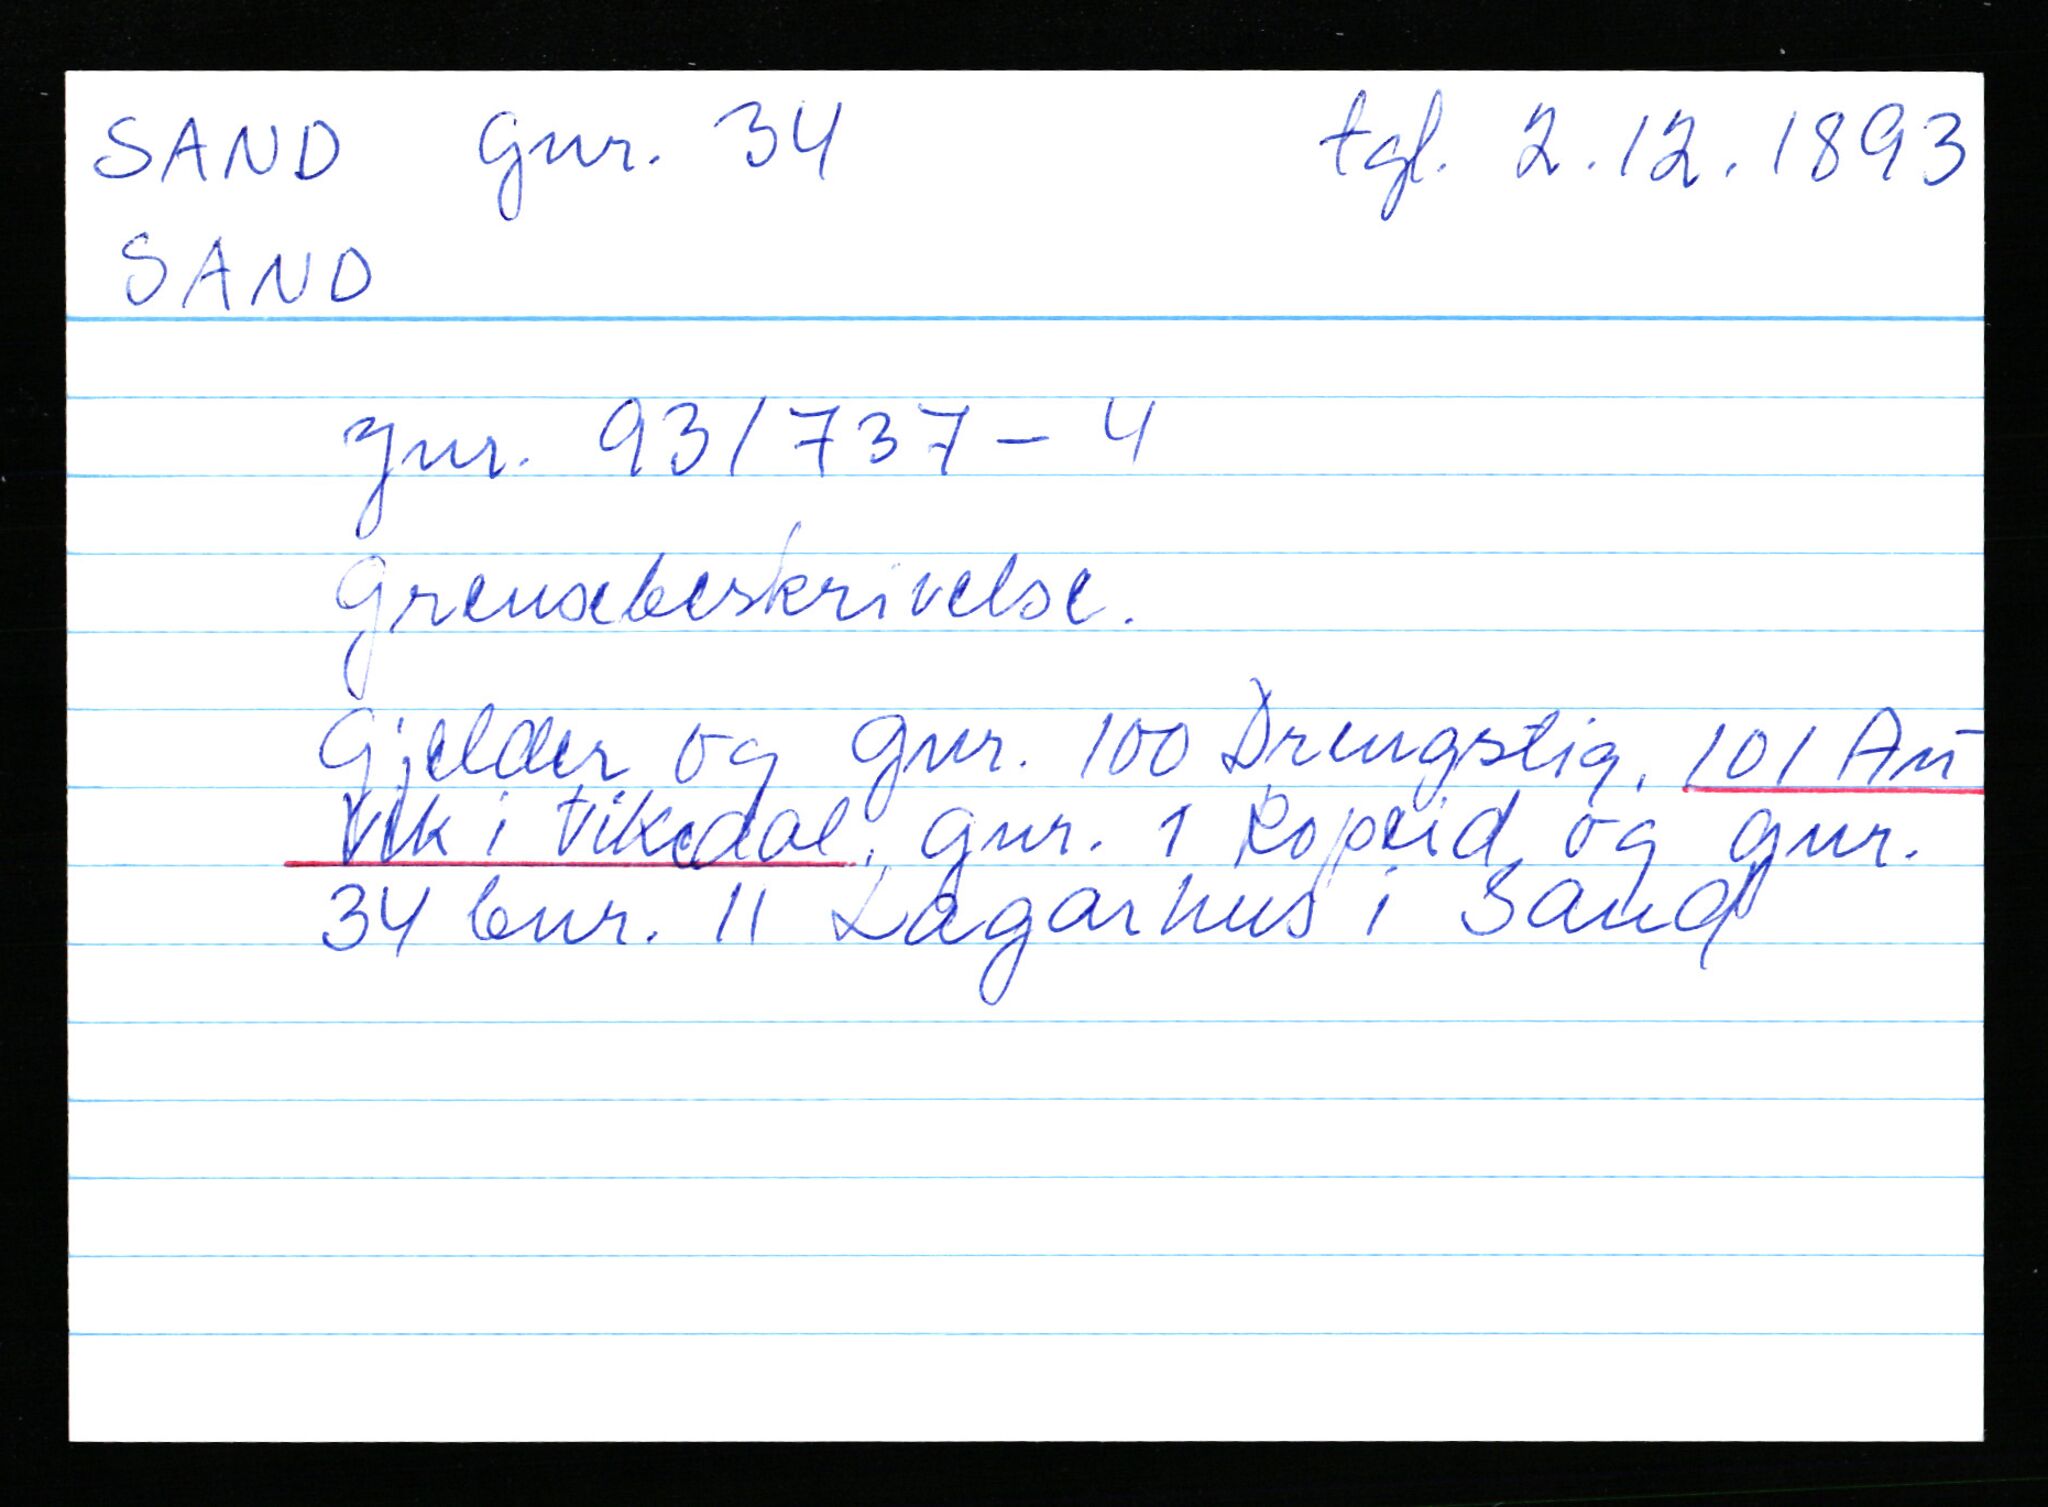 SAND gnr. 34 tgl. 2.12.1893
SAND
jnr. 93/737-4
Grensebeskrivelse.
Gjelder og gnr. 100 Drengstig, 101 An-
vik i Vikedal, gnr. 1 Ropeid og gnr.
34 bnr. 11 Lagarhus i Sand